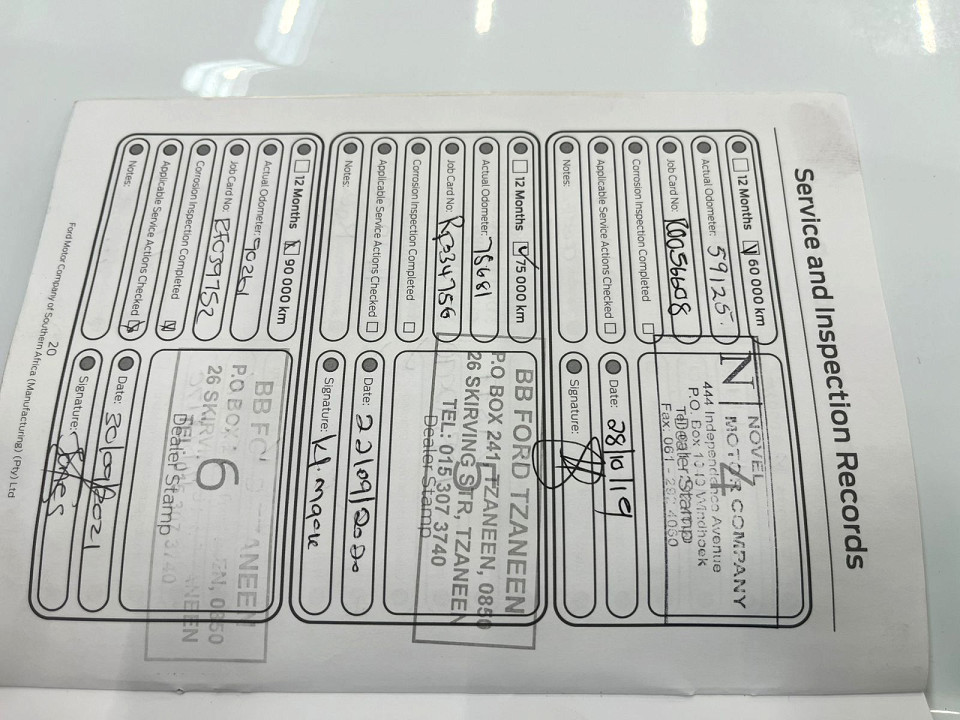 Service and Inspection Records
12 Months 60 000 km
Actual Odometer: 59125.
Job Card No:
Corrosion Inspection Completed
Applicable Service Actions Checked
Notes:
4
N NOVEL
MOTOR COMPANY
444 Independence Avenue
P.O. Box Windhoek
Dealer Stamp
Fax: 061 -
Date: 28/10/19
Signature:
12 Months 75 000 km
Actual Odometer: 75681
Job Card No:
Corrosion Inspection Completed
Applicable Service Actions Checked
Notes:
5
BB FORD TZANEEN
P.O BOX 241, TZANEEN, 0850
26 SKIRVING STR, TZANEEN
TEL: 015 307 3740
Dealer Stamp
Date: 22/09/2020
Signature:
12 Months 90 000 km
Actual Odometer: 90261
Job Card No:
Corrosion Inspection Completed
Applicable Service Actions Checked
Notes:
6
BB TZANEEN
P.O BOX 0850
26 SKIRV
3740
Dealer Stamp
Date: 30/09/2021
Signature:
20
Ford Motor Company of Southern Africa (Manufacturing) (Pty) Ltd